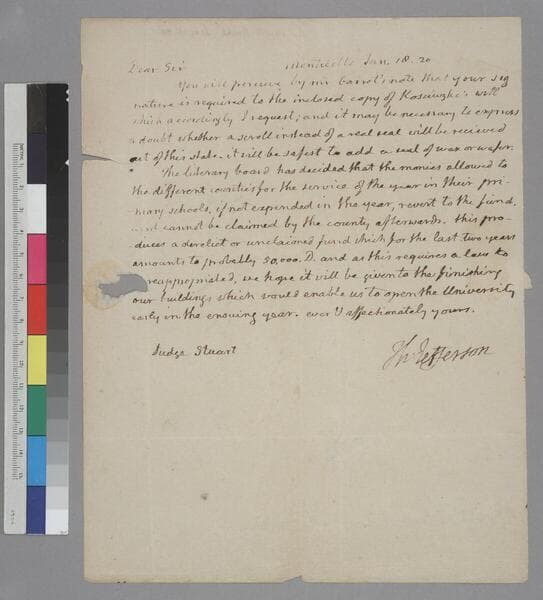 Dear Sir Monticello Jan. 18. 20
You will percieve by mr Barrot's note that your sig
nature is required to the inclosed copy of Kosciuzko's will
which accordingly I request; and it may be necessary to express
a doubt whether a scroll instead of a real seal will be recieved
out of this state. it will be safest to add a seal of wax or wafer.
The literary board has decided that the monies allowed to
the different counties for the service of the year in their pri-
mary schools, if not expended in the year, revert to the fund,
and cannot be claimed by the county afterwards. this pro-
duces a derelict or unclaimed fund which for the last two years
amounts to probably 50,000.D. and as this requires a law to
reappropriated, we hope it will be given to the finishing
our buildings which would enable us to open the University
early in the ensuing year. ever & affectionately yours.
Th: Jefferson
Judge Stuart